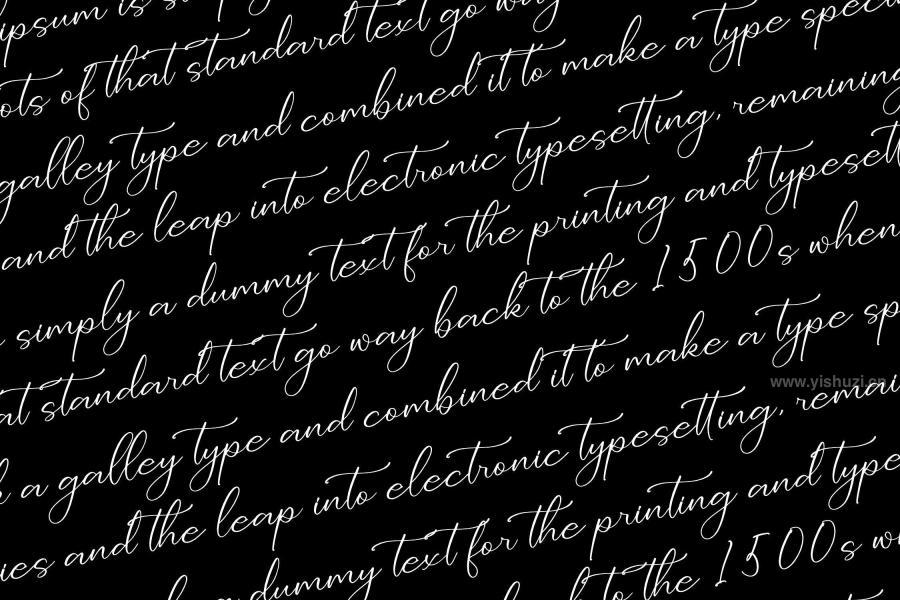 ipsum is
ots of that standard text go way
galley type and combined it to make a type speci
and the leap into electronic typesetting, remaining
simply a dummy text for the printing and typesett
at standard text go way back to the 1500s when
a galley type and combined it to make a type sp
ies and the leap into electronic typesetting, remai
a dummy text for the printing and type
to the 1500s w
www.yishuzi.cn